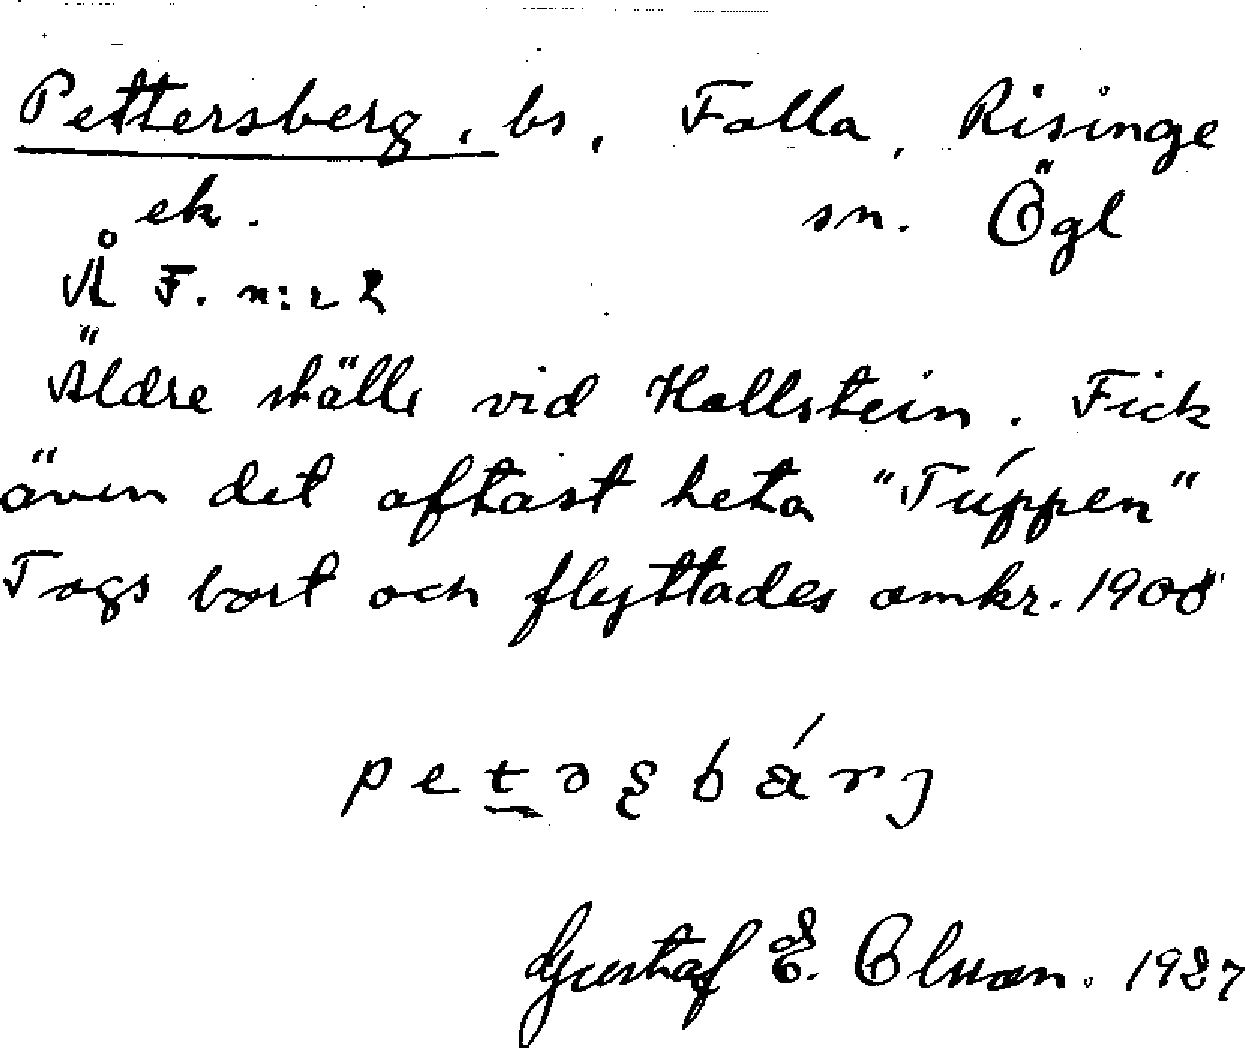 Pettersberg, bs, Falla, Risinge
ek. sn. Ögl
Å F. n:r 2
Äldre ställe vid Hallstein. Fick
även det oftast heta "Túppen"
Togs bort och flyttades omkr. 1908
petəʂbárj
Gustaf E. Olsson. 1927